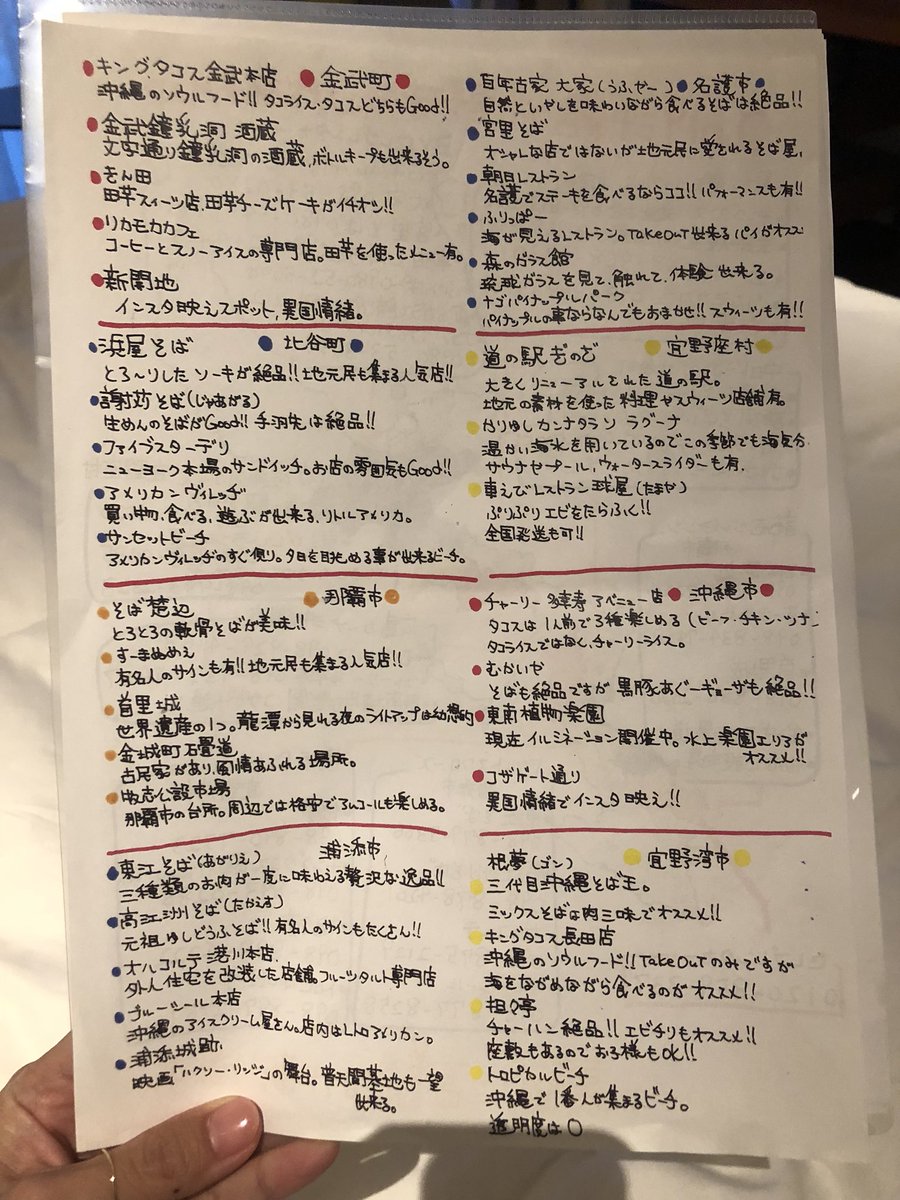 ●キングタコス金武本店 ●金武町●
沖縄のソウルフード!! タコライス・タコスどちらもGood!!
●金武鐘乳洞 酒蔵
文字通り鐘乳洞の酒蔵、ボトルキープも出来るそう。
●きん田
田芋スイーツ店、田芋チーズケーキがイチオシ!!
●リカモカカフェ
コーヒーとスノーアイスの専門店。田芋を使ったメニュー有。
●新開地
インスタ映えスポット、異国情緒。
●浜屋そば ●北谷町●
とろ〜りしたソーキが絶品!! 地元民も集まる人気店!!
●謝苅そば(じゃあがる)
生めんのそばがGood!! 手羽先は絶品!!
●ファイブスターデリ
ニューヨーク本場のサンドイッチ。お店の雰囲気もGood!!
●アメリカンヴィレッヂ
買い物、食べる、遊ぶが出来る、リトルアメリカ。
●サンセットビーチ
アメリカンヴィレッヂのすぐ側り。夕日を眺める事が出来るビーチ。
●そば 楚辺 ●那覇市●
とろとろの軟骨そばが美味!!
●すーまぬめぇ
有名人のサインも有!! 地元民も集まる人気店!!
●首里城
世界遺産の1つ。龍潭から見れる夜のライトアップは幻想的
●金城町石畳道
古民家があり、風情あふれる場所。
●牧志公設市場
那覇市の台所。周辺では格安でアルコールも楽しめる。
●東江そば(あがりえ) 浦添市
三種類のお肉が一度に味わえる贅沢な逸品!!
●高江洲そば(たかえす)
元祖ゆしどうふそば!! 有名人のサインもたくさん!!
●オハコルテ 港川本店
外人住宅を改装した店舗。フルーツタルト専門店
●ブルーシール本店
沖縄のアイスクリーム屋さん。店内はレトロアメリカン。
●浦添城跡
映画「ハクソー・リッジ」の舞台。普天間基地も一望
出来る。
●百年古家 大家(うふやー) ●名護市●
自然といやしを味わいながら食べるそばは絶品!!
●宮里そば
オシャレな店ではないが地元民に愛されるそば屋、
●朝日レストラン
名護でステーキを食べるならココ!! パフォーマンスも有!!
●ふりっぱー
海が見えるレストラン。TakeOut出来るパイがオスス
●森のガラス館
琉球ガラスを見て、触れて、体験出来る。
●ナゴパイナップルパーク
パイナップルの事ならなんでもおまかせ!! スウィーツも有!!
●道の駅ぎのざ ●宜野座村●
大きくリニューアルされた道の駅。
地元の素材を使った料理やスウィーツ店舗有。
●かりゆしカンナタラソラグーナ
温かい海水を用いているのでこの季節でも海気分
サウナやプール、ウォータースライダーも有。
●車えびレストラン球屋(たまや)
ぷりぷりエビをたらふく!!
全国発送も可!!
●チャーリー多幸寿 アベニュー店 ●沖縄市●
タコスは1人前で3種楽しめる(ビーフ・チキン・ツナ)
タコライスではなく、チャーリーライス。
●むかいや
そばも絶品ですが黒豚あぐーギョーザも絶品!!
●東南植物楽園
現在イルミネーション開催中。水上楽園エリアが
オススメ!!
●コザゲート通り
異国情緒でインスタ映え!!
根夢(ゴン) ●宜野湾市●
●三代目沖縄そば王。
ミックスそばは肉三味でオススメ!!
●キングタコス長田店
沖縄のソウルフード!! TakeOutのみですが
海をながめながら食べるのがオススメ!!
●担々亭
チャーハン絶品!! エビチリもオススメ!!
座敷もあるのでお子様もOK!!
●トロピカルビーチ
沖縄で1番人が集まるビーチ。
透明度は○